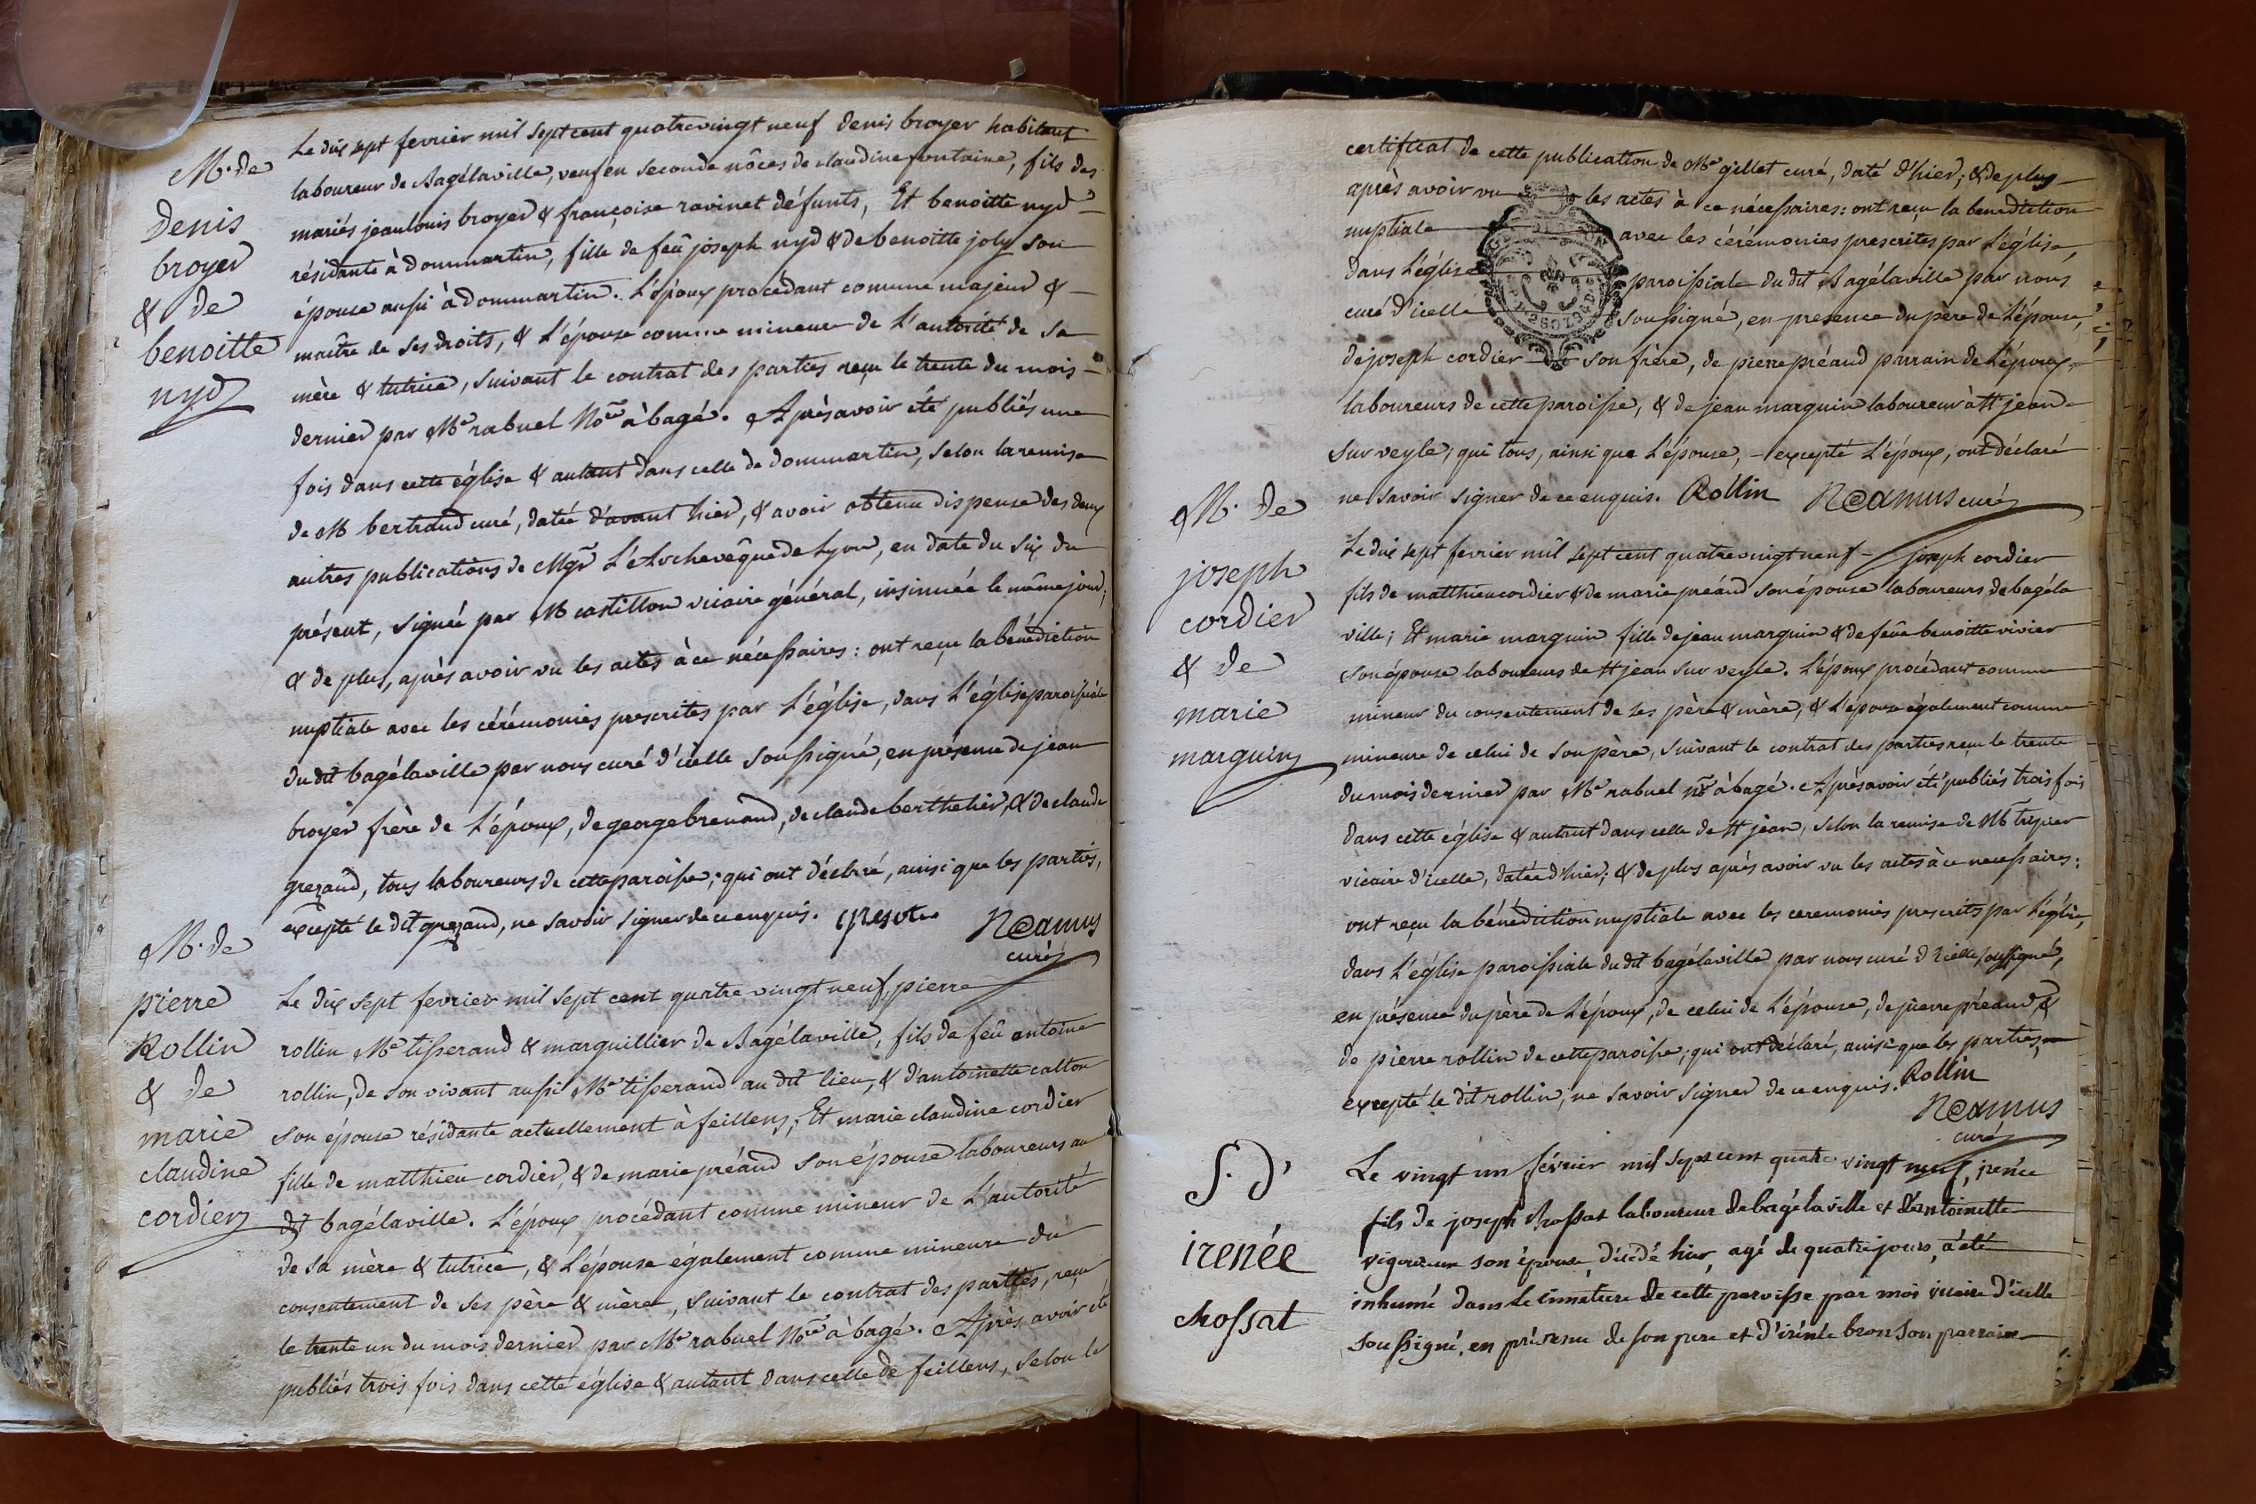 M. de
Denis
broyer
& de
benoitte
nyd
Le dix sept fevrier mil sept cent quatrevingt neuf denis broyer habitant
laboureur de Bagélaville, veuf en seconde nôces de claudine fontaine, fils des
mariés jeanlouis broyer & françoise ravinet défunts, Et benoitte nyd
résidante à dommartin, fille de feû joseph nyd & de benoitte joly son
épouse aussi à dommartin. L'époux procedant comme majeur &
maître de ses droits, & L'épouse comme mineure de L'autorité de sa
mère & tutrice, suivant le contrat des parties reçu le trente du mois
dernier par Me rabuel Nore à bagé. Après avoir été publiés une
fois dans cette église & autant dans celle de dommartin, selon la remise
de M bertrand curé, datée d'avant hier, & avoir obtenu dispense des deux
autres publications de Mgr L'Archevêque de Lyon, en date du six du
présent, signée par M castillon vicaire général, insinuée le même jour;
& de plus, après avoir vu les actes à ce nécessaires: ont reçu la bénédiction
nuptiale avec les cérémonies prescrites par L'église, dans L'église paroissiale
du dit bagélaville par nous curé d'icelle soussigné, en présence de jean
broyer frère de L'époux, de george brenand, de claude berthelier, & de claude
grezaud, tous laboureurs de cette paroisse; qui ont déclaré, ainsi que les parties,
excepté le dit grezaud, ne savoir signer de ce enquis.
Neamus
curé
M. de
pierre
Rollin
& de
marie
claudine
cordier
Le dix sept fevrier mil sept cent quatre vingt neuf, pierre
rollin Me tisserand & marguillier de Bagélaville, fils de feû antoine
rollin, de son vivant aussi Me tisserand au dit lieu, & d'antoinette catton
son épouse résidante actuellement à feillens; Et marie claudine cordier
fille de matthieu cordier, & de marie préaud son épouse laboureurs au
dit bagélaville. L'époux procédant comme mineur de L'autorité
de sa mère & tutrice, & L'épouse également comme mineure du
consentement de ses père & mère, suivant le contrat des parties, reçu
le trente un du mois dernier par Me rabuel Nore à bagé. Après avoir été
publiés trois fois dans cette église & autant dans celle de feillens, selon le
certificat de cette publication de Me gillet curé, daté d'hier; & de plus
après avoir vu les actes à ce nécessaires: ont reçu la benediction
nuptiale avec les cérémonies prescrites par L'église,
dans L'église paroissiale du dit Bagélaville par nous
curé d'icelle soussigné, en presence du père de L'épouse,
de joseph cordier son frère, de pierre préaud parrain de L'époux,
laboureurs de cette paroisse, & de jean marguin laboureur à St jean
sur veyle; qui tous, ainsi que L'épouse, excepté L'époux, ont déclaré
ne savoir signer de ce enquis. Rollin Neamus curé
M. de
joseph
cordier
& de
marie
marguin
Le dix sept fevrier mil sept cent quatrevingt neuf joseph cordier
fils de matthieu cordier & de marie préaud son épouse laboureurs de bagéla
ville; Et marie marguin fille de jean marguin & de feûe benoitte vivier
son épouse laboureurs de St jean sur veyle. L'époux procédant comme
mineur du consentement de ses père & mère, & L'épouse également comme
mineure de celui de son père, suivant le contrat des parties reçu le trente
du mois dernier par Me rabuel nre à bagé. Après avoir été publiés trois fois
dans cette église & autant dans celle de St jean, selon la remise de M
vicaire d'icelle, datée d'hier; & de plus après avoir vu les actes à ce necessaires:
ont reçu la bénédiction nuptiale avec les ceremonies prescrites par L'église,
dans L'église paroissiale du dit bagélaville par nous curé d'icelle soussigné,
en présence du père de L'époux, de celui de L'épouse, de pierre préaud &
de pierre rollin de cette paroisse; qui ont déclaré, ainsi que les parties,
excepté le dit rollin, ne savoir signer de ce enquis. Rollin
Neamus
curé
S. d'
irenée
chossat
Le vingt un février mil sept cent quatre vingt neuf, irenée
fils de joseph chossat laboureur de bagélaville et d'antoinette
vigoureux son épouse, décédé hier, agé de quatre jours, a été
inhumé dans le cimetiere de cette paroisse par moi vicaire d'icelle
soussigné, en présence de son pere et d'irénée bron son parrain